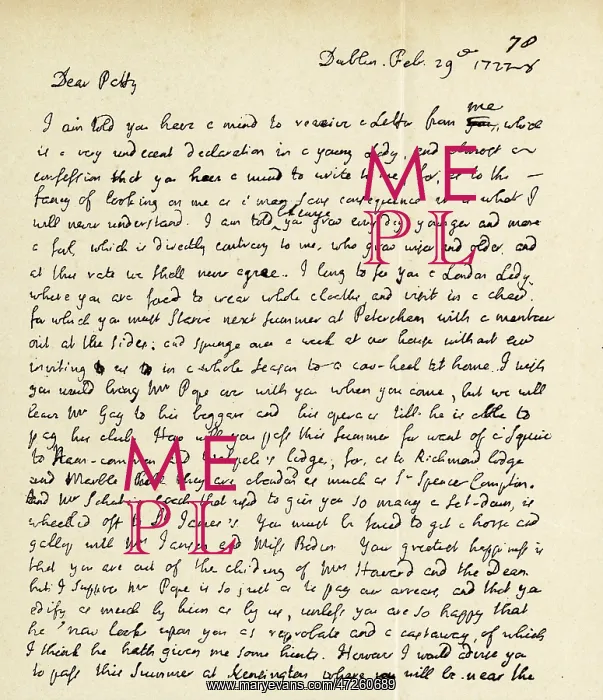 78
Dublin. Feb. 29th 1727-8
Dear Patty
me
I am told you have a mind to receive a Letter from you, which
is a very undecent declaration in a young Lady, and almost a
confession that you have a mind to write to me for, as to the
fancy of looking on me as a man Sans consequence it is what I
because
will never understand. I am told you grow every day younger and more
a fool, which is directly contrary to me, who grow wiser and older, and
at this rate we shall never agree. I long to see you a London Lady,
where you are forced to wear whole cloathes and visit in a chair,
for which you must starve next Summer at Petersham with a mantow
out at the sides; and spunge once a week at our house without ever
inviting us in a whole Season to a cow-heel at home. I wish
you would bring Mr Pope over with you when you come, but we will
leave Mr Gay to his beggars and his operas till he is able to
pay his club. How will you pass this Summer for want of a Squire
to Ham-common and Walpole's lodge; for, as to Richmond lodge
and Marble hill they are abandoned as much as Sr Spencer Compton.
And Mr Schutz's coach that used to give you so many a set-down, is
wheel'd off to St James's. You must be forced to get a horse and
gallop with Mrs Jansen and Miss Bedier. Your greatest happiness is
that you are out of the chiding of Mrs Howard and the Dean
but I suppose Mr Pope is so just as to pay our arrears, and that you
edify as much by him as by us, unless you are so happy that
he now looks upon you as reprobate and a castaway, of which
I think he hath given me some hints. However I would advise you
to pass this Summer at Kensington where you will be near the
ME
PL
ME
PL
www.maryevans.com/47260689